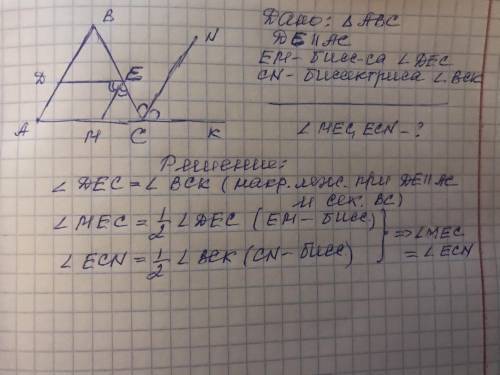 B
N
D
E
A
M
C
K
Дано: △ABC
DE||AC
EM - бисс-са ∠DEC
CN - биссектриса ∠BCK
∠MEC, ECN - ?
Решение:
∠DEC = ∠BCK (накр. леж. при DE||AC
и сек. BC)
∠MEC = 1/2 ∠DEC (EM - бисс)
∠ECN = 1/2 ∠BCK (CN - бисс)
} => ∠MEC
= ∠ECN